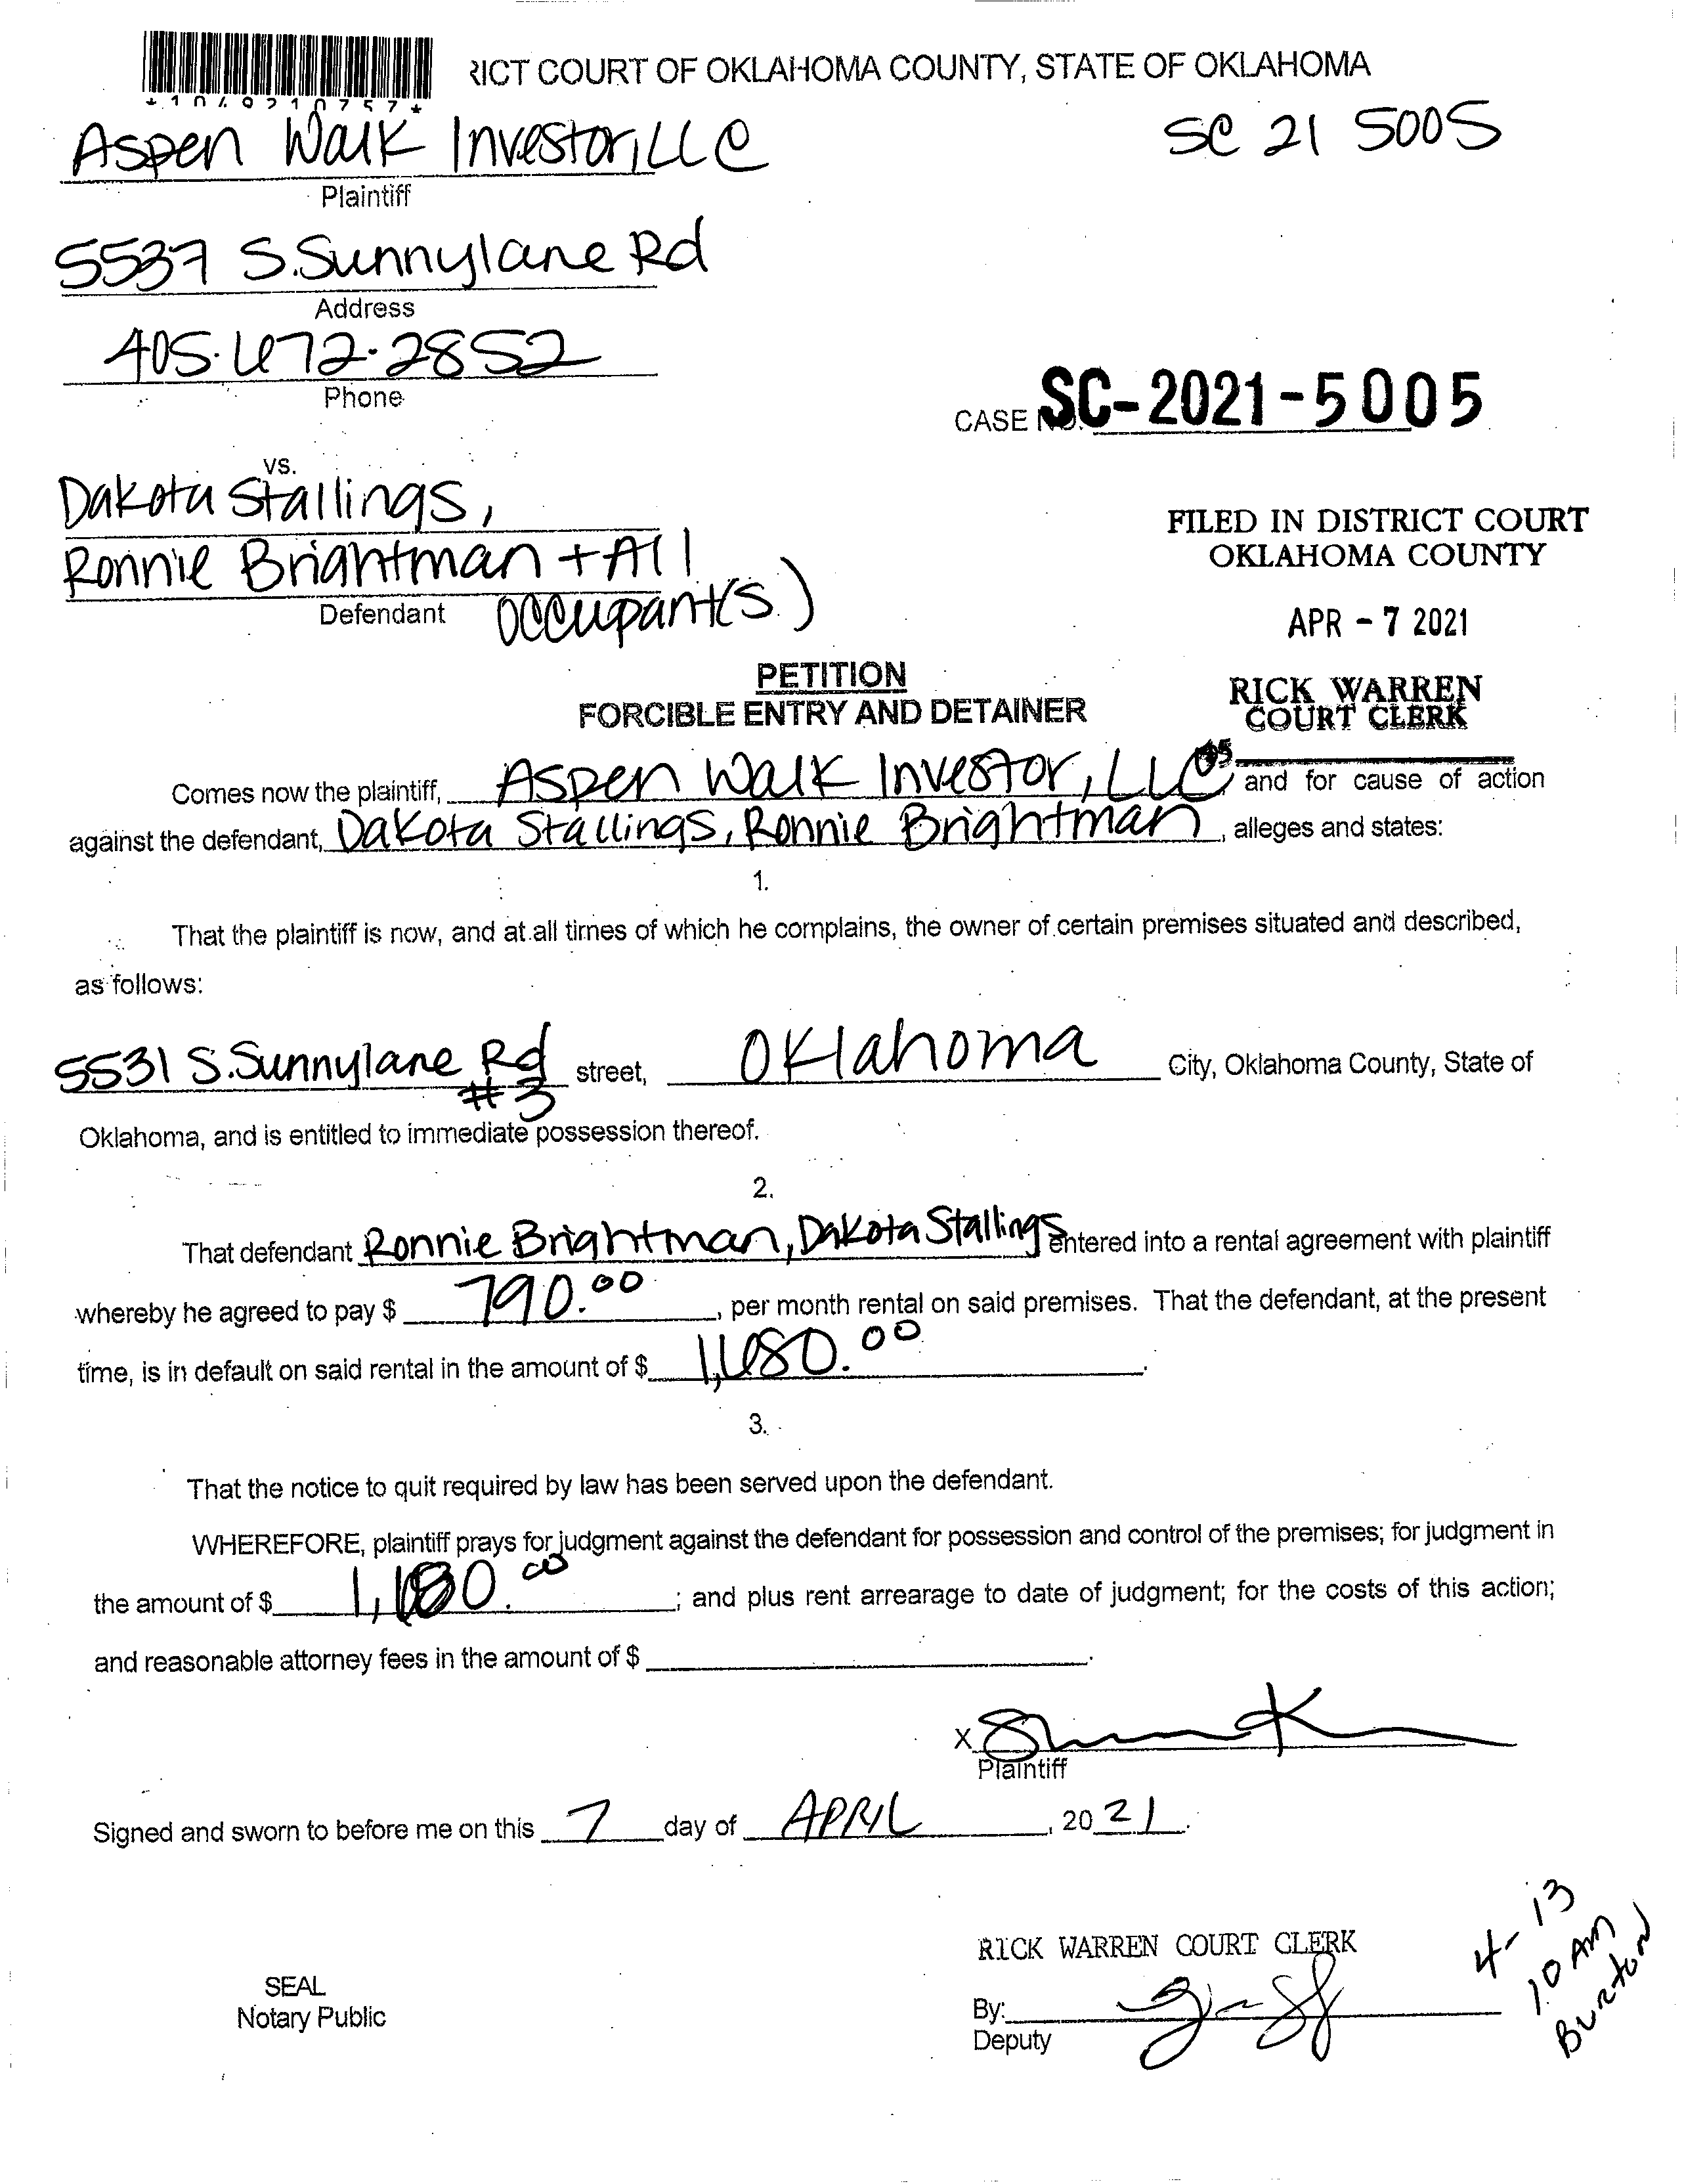 *1049210757*
RICT COURT OF OKLAHOMA COUNTY, STATE OF OKLAHOMA
Aspen Walk Investor, LLC
SC 21 5005
Plaintiff
5537 S. Sunnylane Rd
Address
405.672.2852
Phone
CASE NO. SC-2021-5005
vs.
Dakota Stallings,
Ronnie Brightman + All
Defendant occupant(s)
FILED IN DISTRICT COURT
OKLAHOMA COUNTY
APR - 7 2021
RICK WARREN
COURT CLERK
PETITION
FORCIBLE ENTRY AND DETAINER
Comes now the plaintiff, Aspen Walk Investor, LLC, and for cause of action
against the defendant, Dakota Stallings, Ronnie Brightman, alleges and states:
1.
That the plaintiff is now, and at all times of which he complains, the owner of certain premises situated and described,
as follows:
5531 S. Sunnylane Rd #3 street, Oklahoma City, Oklahoma County, State of
Oklahoma, and is entitled to immediate possession thereof.
2.
That defendant Ronnie Brightman, Dakota Stallings entered into a rental agreement with plaintiff
whereby he agreed to pay $ 790.00, per month rental on said premises. That the defendant, at the present
time, is in default on said rental in the amount of $ 1,680.00.
3.
That the notice to quit required by law has been served upon the defendant.
WHEREFORE, plaintiff prays for judgment against the defendant for possession and control of the premises; for judgment in
the amount of $ ; and plus rent arrearage to date of judgment; for the costs of this action;
and reasonable attorney fees in the amount of $
X
Plaintiff
Signed and sworn to before me on this 7 day of APRIL, 20 21.
RICK WARREN COURT CLERK
4-13
10 AM
Burton
SEAL
Notary Public
By:
Deputy